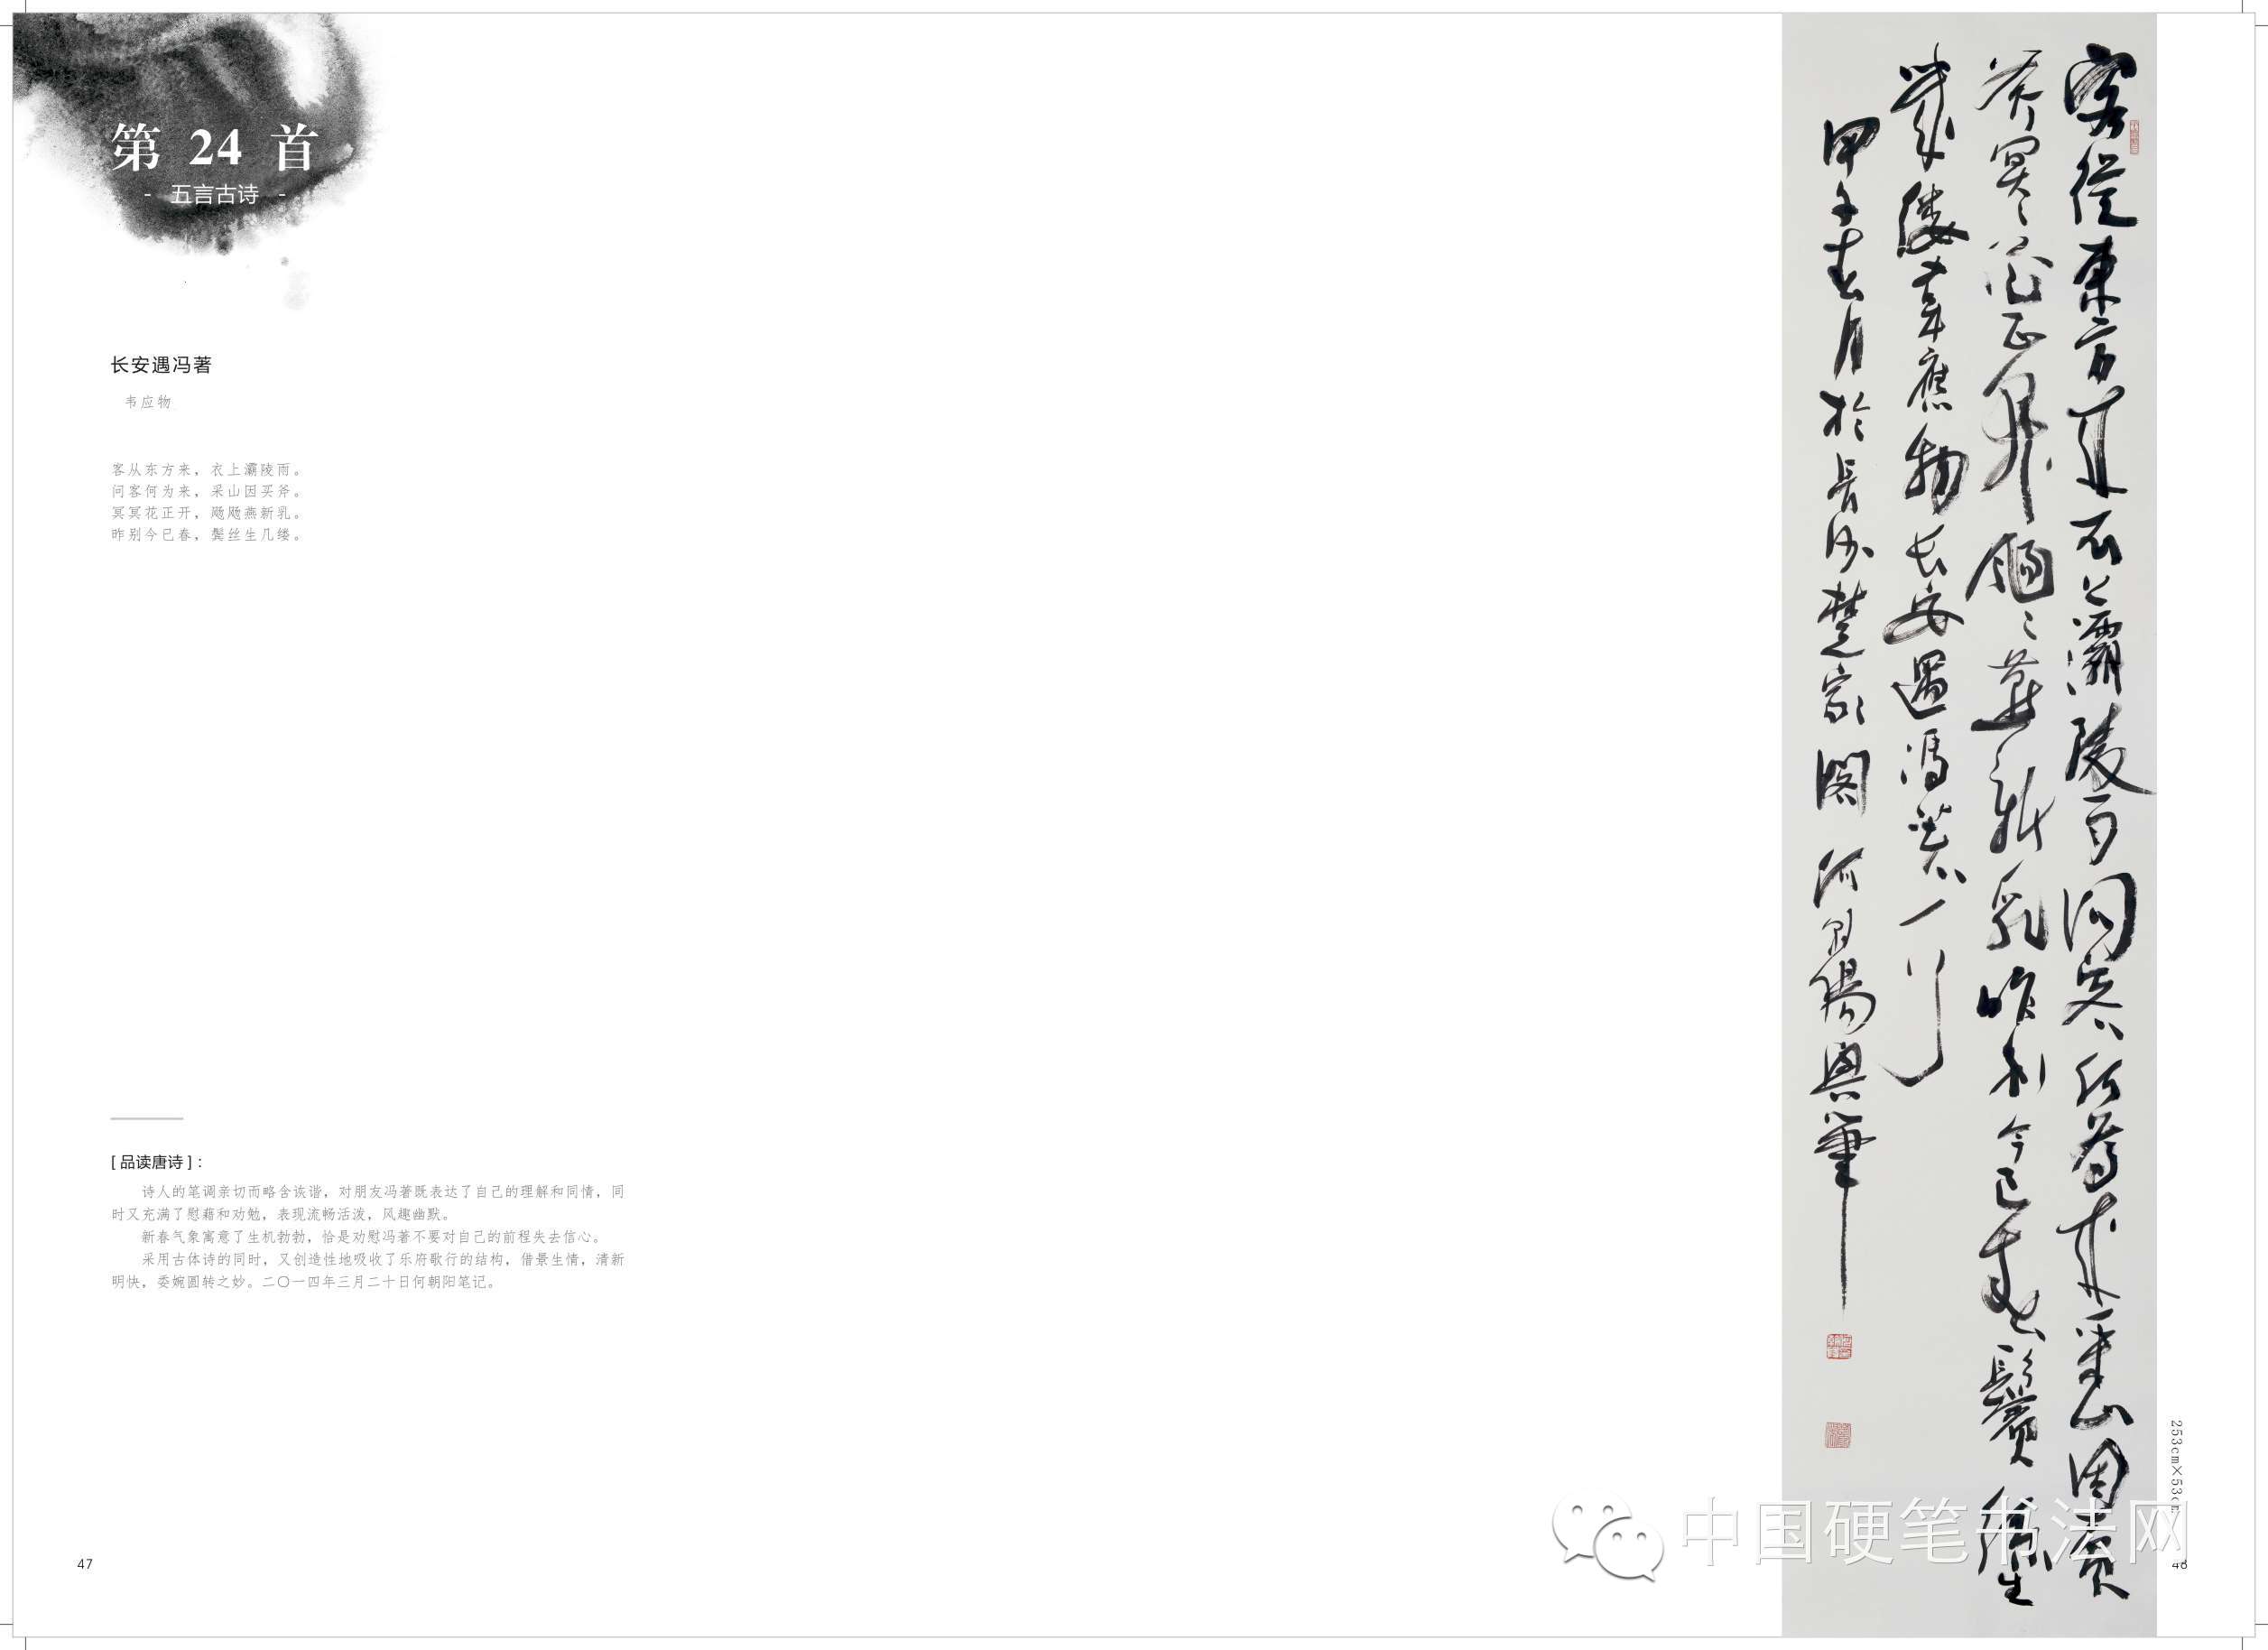 第 24 首
- 五言古诗 -
长安遇冯著
韦应物
客从东方来，衣上灞陵雨。
问客何为来，采山因买斧。
冥冥花正开，飏飏燕新乳。
昨别今已春，鬓丝生几缕。
[ 品读唐诗 ]：
诗人的笔调亲切而略含诙谐，对朋友冯著既表达了自己的理解和同情，同
时又充满了慰藉和劝勉，表现流畅活泼，风趣幽默。
新春气象寓意了生机勃勃，恰是劝慰冯著不要对自己的前程失去信心。
采用古体诗的同时，又创造性地吸收了乐府歌行的结构，借景生情，清新
明快，委婉圆转之妙。二〇一四年三月二十日何朝阳笔记。
47
客從東方来衣上灞陵雨問客何為来采山因買
斧冥冥花正開颺颺燕新乳昨别今已春鬢絲生
幾縷韋應物长安遇馮著一首
甲子春月於長沙楚家閣 河朝陽興筆
253cm×53cm
48
中国硬笔书法网